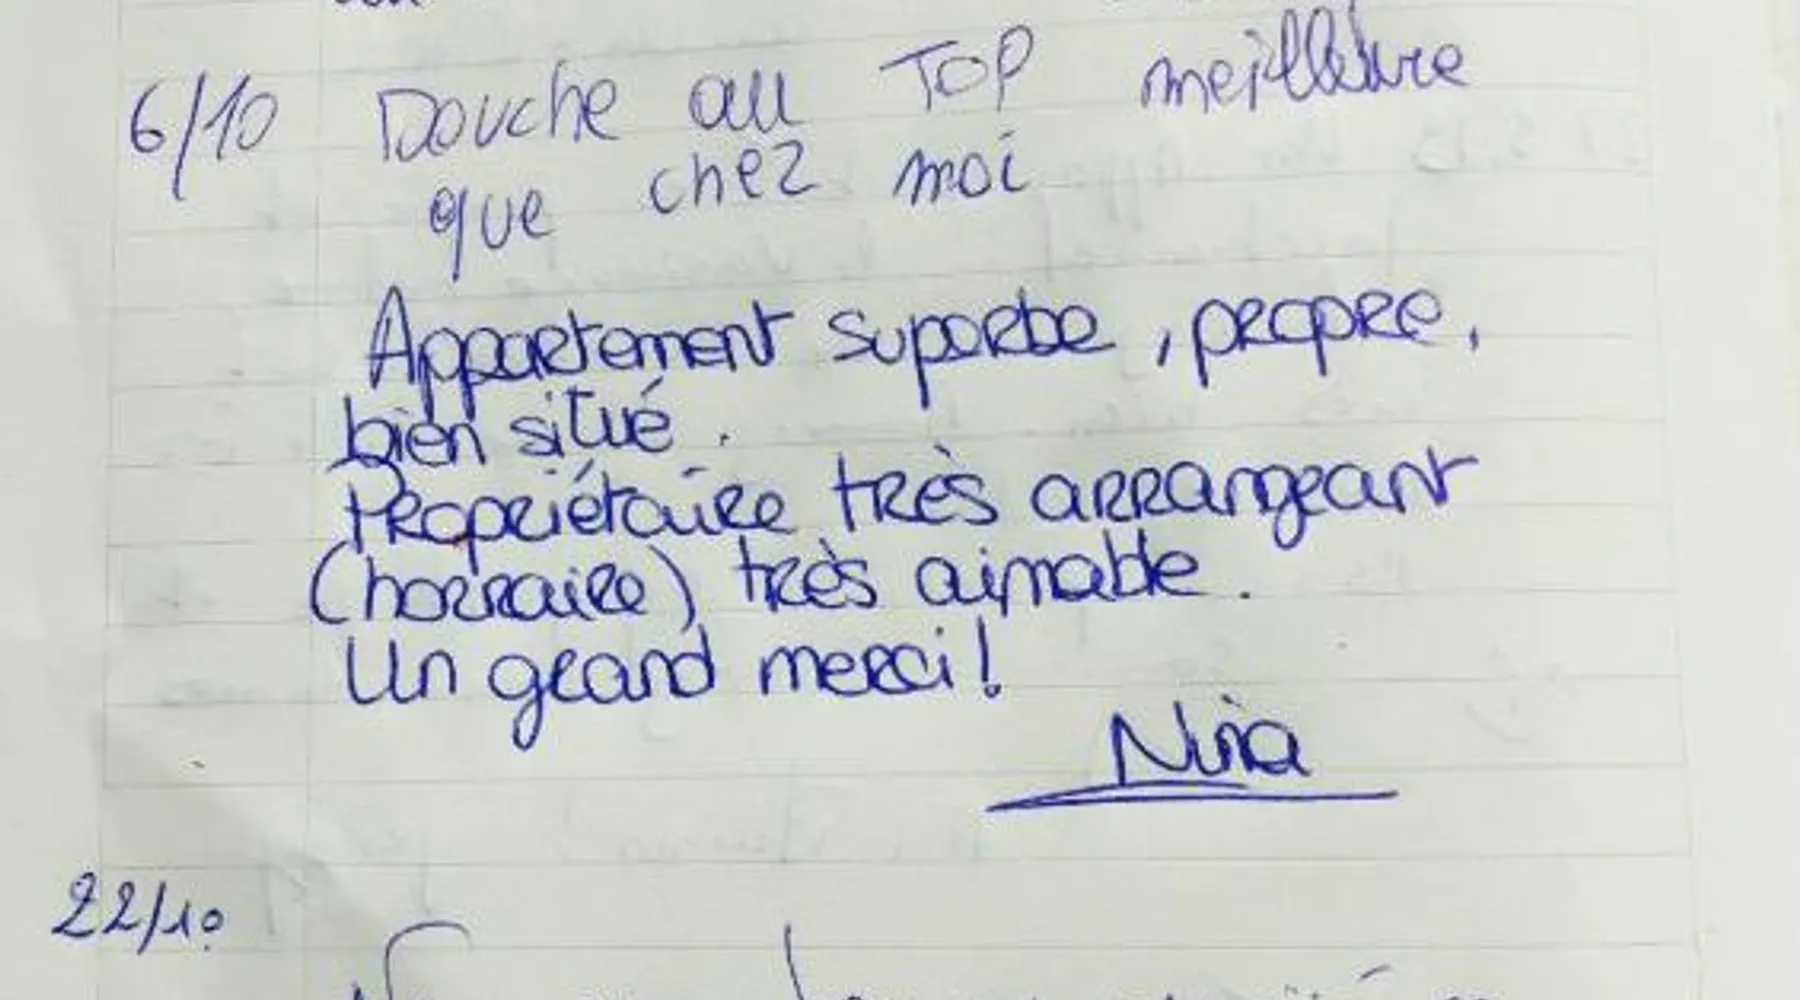 6/10 Douche au TOP meilleure
que chez moi
Appartement superbe, propre,
bien situé.
Propriétaire très arrangeant
(horraire) très aimable.
Un grand merci!
Nina
22/10